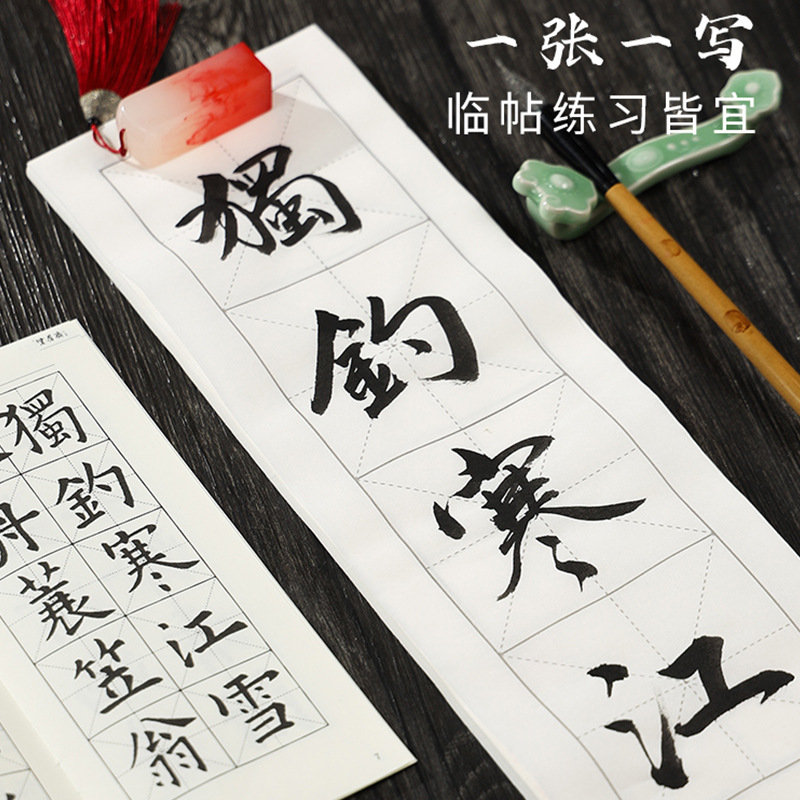 一张一写
临帖练习皆宜
獨
釣
寒
江
獨釣寒江雪
舟蓑笠翁